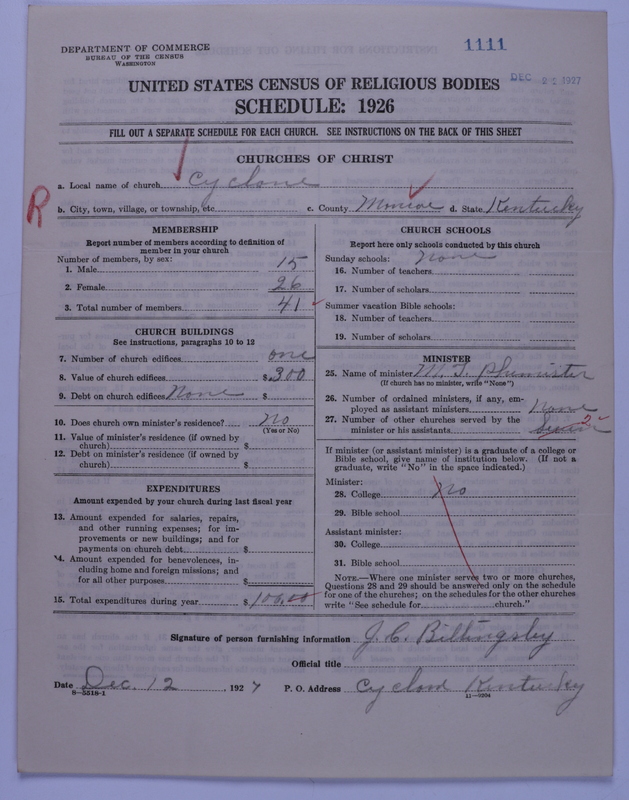 DEPARTMENT OF COMMERCE
BUREAU OF THE CENSUS
WASHINGTON
1111
DEC 21 1927
UNITED STATES CENSUS OF RELIGIOUS BODIES
SCHEDULE: 1926
FILL OUT A SEPARATE SCHEDULE FOR EACH CHURCH. SEE INSTRUCTIONS ON THE BACK OF THIS SHEET
CHURCHES OF CHRIST
a. Local name of church Cyclone
R
b. City, town, village, or township, etc. c. County Monroe d. State Kentucky
MEMBERSHIP
Report number of members according to definition of
member in your church
Number of members, by sex:
1. Male 15
2. Female 26
3. Total number of members 41
CHURCH BUILDINGS
See instructions, paragraphs 10 to 12
7. Number of church edifices one
8. Value of church edifices $ 300
9. Debt on church edifices None $
10. Does church own minister's residence? No
(Yes or No)
11. Value of minister's residence (if owned by
church) $
12. Debt on minister's residence (if owned by
church) $
EXPENDITURES
Amount expended by your church during last fiscal year
13. Amount expended for salaries, repairs,
and other running expenses; for im-
provements or new buildings; and for
payments on church debt $
14. Amount expended for benevolences, in-
cluding home and foreign missions; and
for all other purposes $
15. Total expenditures during year $ 100.00
CHURCH SCHOOLS
Report here only schools conducted by this church
Sunday schools: None
16. Number of teachers
17. Number of scholars
Summer vacation Bible schools:
18. Number of teachers
19. Number of scholars
MINISTER
25. Name of minister M. F.
(If church has no minister, write "None")
26. Number of ordained ministers, if any, em-
ployed as assistant ministers None
27. Number of other churches served by the
minister or his assistants 2
If minister (or assistant minister) is a graduate of a college or
Bible school, give name of institution below. (If not a
graduate, write "No" in the space indicated.)
Minister:
28. College No
29. Bible school
Assistant minister:
30. College
31. Bible school
NOTE.—Where one minister serves two or more churches,
Questions 28 and 29 should be answered only on the schedule
for one of the churches; on the schedules for the other churches
write "See schedule for church."
Signature of person furnishing information J. C. Billingsby
Official title
Date Dec. 12, 1927 P. O. Address Cyclone Kentucky
8—5518-1 11—9204